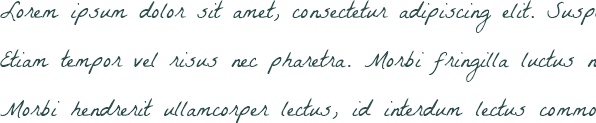 Lorem ipsum dolor sit amet, consectetur adipiscing elit. Susp
Etiam tempor vel risus nec pharetra. Morbi fringilla luctus n
Morbi hendrerit ullamcorper lectus, id interdum lectus commo